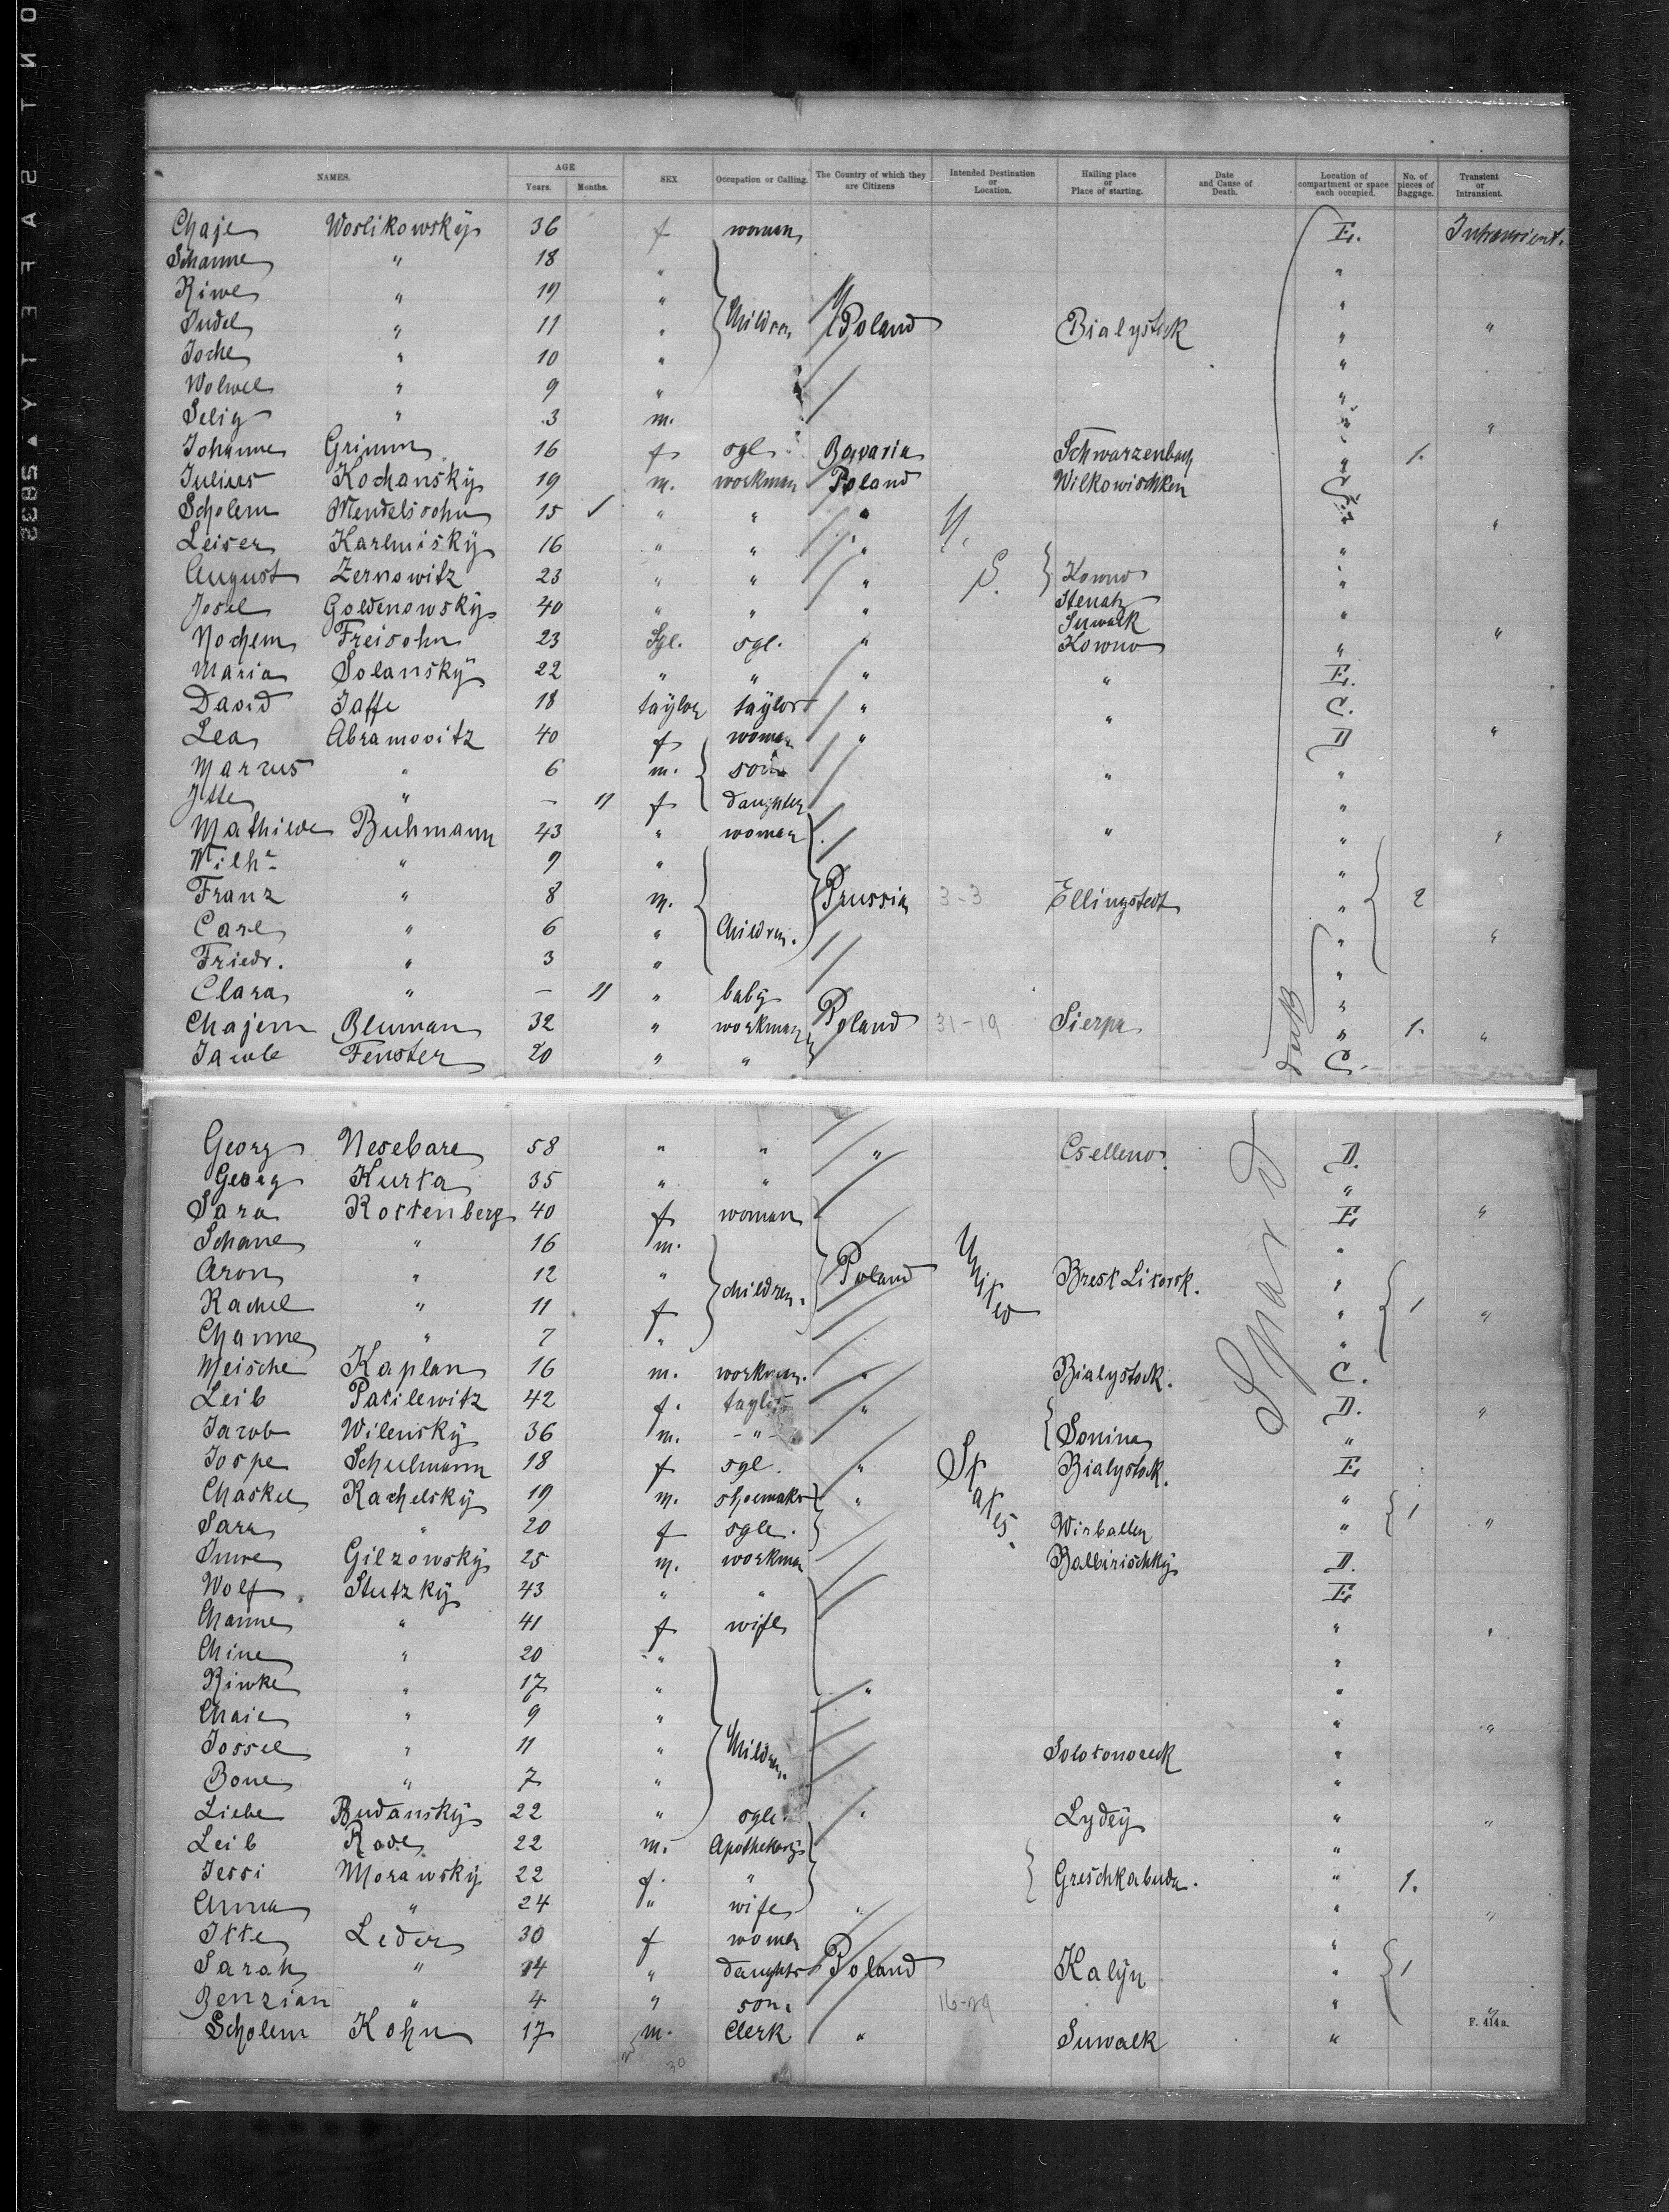 NAMES. AGE Years. Months. SEX Occupation or Calling. The Country of which they are Citizens Intended Destination or Location. Hailing place or Place of starting. Date and Cause of Death. Location of compartment or space each occupied. No. of pieces of Baggage. Transient or Intransient.
Chaje Woslikowsky 36 f woman E. Intransient.
Schanne " 18 " "
Riwe " 19 " "
Judel " 11 " Children Poland Bialystok " "
Joche " 10 " "
Wolwel " 9 " "
Selig " 3 m. " "
Johanne Grimm 16 f sgl. Bavaria Schwarzenbach " 1.
Julius Kochansky 19 m. workman Poland Wilkowischken C.
Scholem Mendelssohn 15 ✓ " " " " "
Leiser Karlmisky 16 " " " "
August Zernowitz 23 " " " S. Kowno "
Josel Goldenowsky 40 " " " Suwalk "
Nochem Freisohn 23 Sgl. sgl. " Kowno " "
Maria Solansky 22 " " " " E.
David Jaffe 18 taylor taylor " " C.
Lea Abramovitz 40 f woman " D "
Marcus " 6 m. son " "
Itte " – 11 f daughter "
Mathilde Buhmann 43 " woman " " "
Wilhe " 9 " "
Franz " 8 m. Prussia 3-3 Ellingstedt " 2
Carl " 6 " Children. " "
Friedr. " 3 " "
Clara " – 11 " baby "
Chajem Bluman 32 " workman Poland 31-19 Sierpa " 1. "
Jacob Fenster 20 " " C.
Georg Nesebare 58 " " " Cselleno. D.
Georg Kurka 35 " " "
Sara Rottenberg 40 f woman E "
Schane " 16 m. "
Aron " 12 " children. Poland United Brest Litowsk. "
Rachel " 11 f " 1 "
Channe " 7 " "
Meische Kaplan 16 m. workman. " Bialystock. C.
Leib Patilewitz 42 f. taylor " D. "
Jacob Wilensky 36 m. - " - Sonina "
Jospe Schulmann 18 f sgl. " States. Bialystock. E
Chaskel Rachelsky 19 m. shoemaker " " 1
Sara " 20 f sgle. Wirballen " "
Gilzowsky 25 m. workman Balbirischky D.
Wolf Stutzky 43 " " E
Channe " 41 f wife " "
Chine " 20 " "
Riwke " 17 " " "
Chaie " 9 " " "
Jossel " 11 " Children. Solotonoreck "
Bone " 7 " "
Liebe Budansky 22 " sgle. " Lydey " "
Leib Rode 22 m. Apothekary "
Jessi Morawsky 22 f. " Greschkabuda. " 1.
Anna " 24 " wife " " "
Itte Leder 30 f woman "
Sarah " 14 " daughter Poland Kalyn " 1
Benzian " 4 " son. 16-29 "
Scholem Kohn 17 m. Clerk " Suwalk " "
F. 414 a.
30